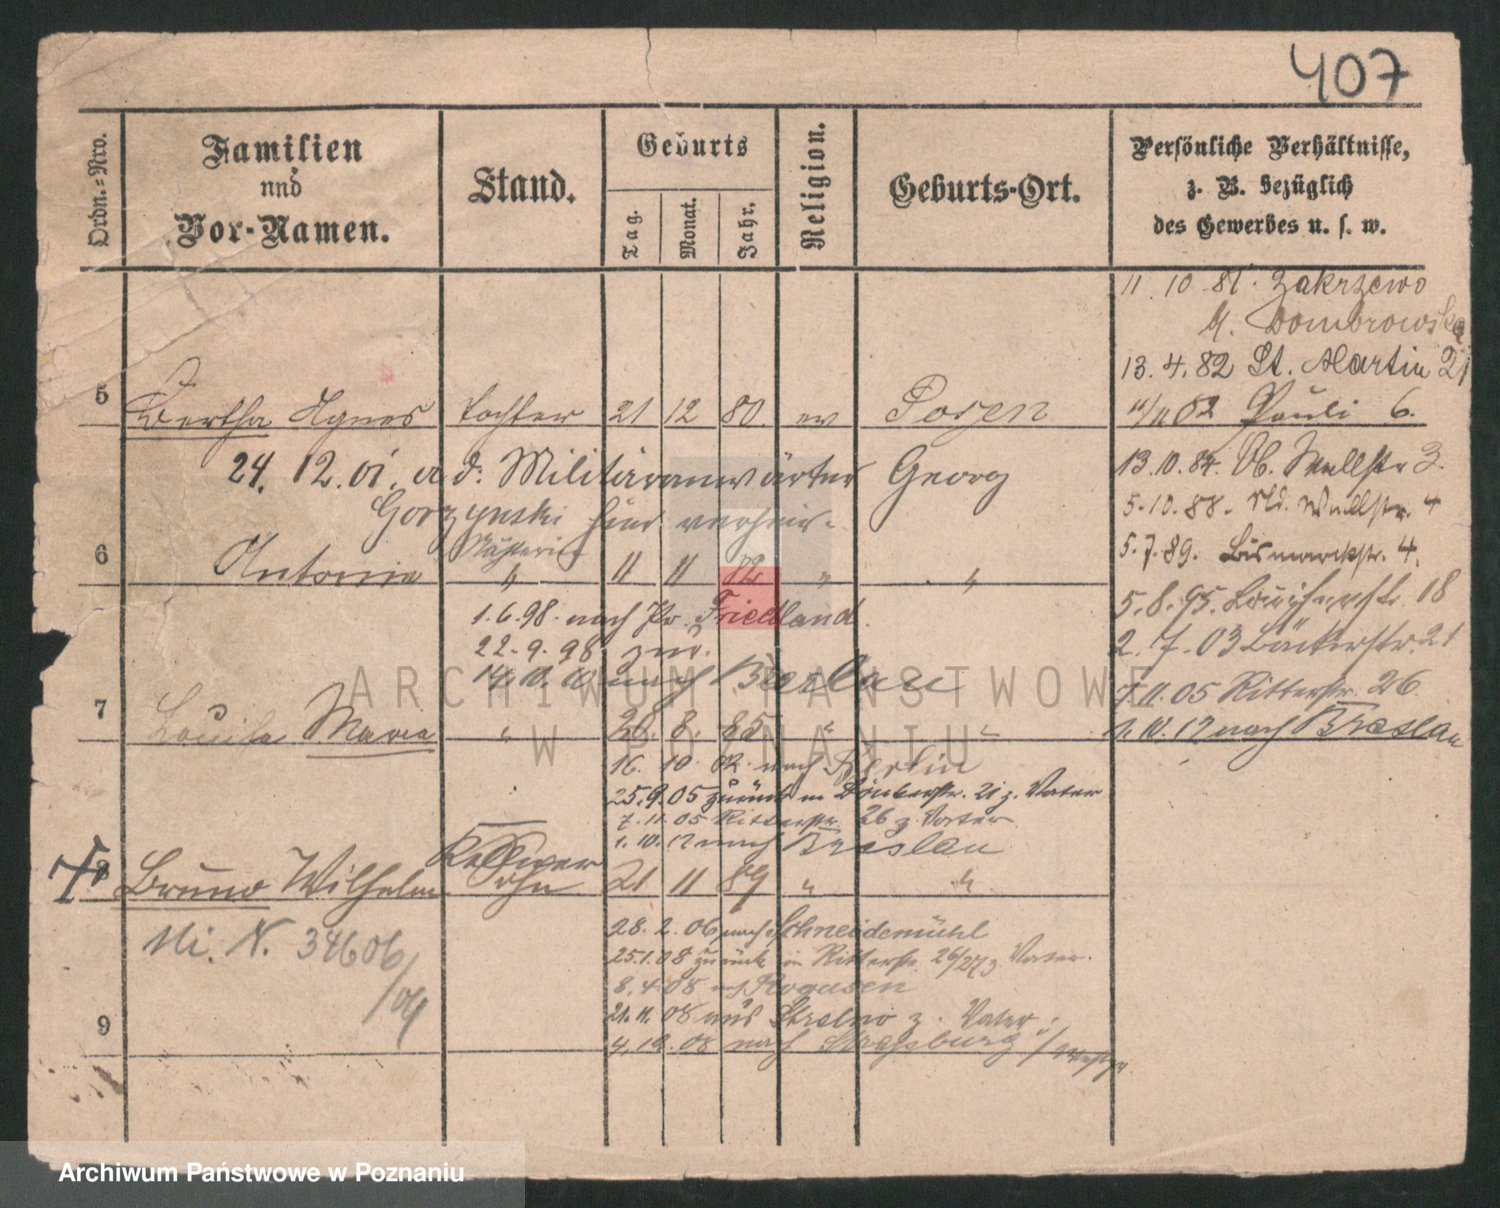 407
Ordn.-Nro.
Familien
und
Vor-Namen.
Stand.
Geburts
Tag.
Monat.
Jahr.
Religion.
Geburts-Ort.
Persönliche Verhältnisse,
z. B. bezüglich
des Gewerbes u. s. w.
11. 10. 81. Zakrzewo
Dombrowska
13. 4. 82 St. Martin 21
5 Bertha Agnes Tochter 21 12 80. ev Posen
11/11 82 Pauli 6.
24. 12. 01. a d. Militäranwärter Georg
13. 10. 84. Wallstr 3.
Gorzynski hier verheir.
5. 10. 88. Wallstr. 4
6 Antonie Näherin " 11 11 82 " "
5. 7. 89. Bismarckstr. 4.
1. 6. 98. nach Pr. Friedland.
5. 8. 95. Louisenstr. 18
22. 9. 98 zur.
2. 7. 03 Bäckerstr. 21
14. 10. 10 nach Breslau
7. 11. 05 Ritterstr. 26
7 Louise Maria " 26. 8. 85 " "
1. 10. 12 nach Breslau
16. 10 02. nach Berlin
25. 9. 05 zurück in Bäckerstr. 21 z. Vater
7. 11. 05 Ritterstr. 26 z. Vater
1. 10. 12 nach Breslau
8 Bruno Wilhelm Kellner Sohn 21 11 89 " "
Mi. N. 34606/09
28. 2. 06 nach Schneidemühl
25. 1. 08 zurück in Ritterstr 26/27 z. Vater.
8. 4. 08 Rogasen
21. 11. 08 aus Strelno z. Vater
9
4. 12. 08 nach Strassburg /Westpr
ARCHIWUM PAŃSTWOWE
W POZNANIU
Archiwum Państwowe w Poznaniu